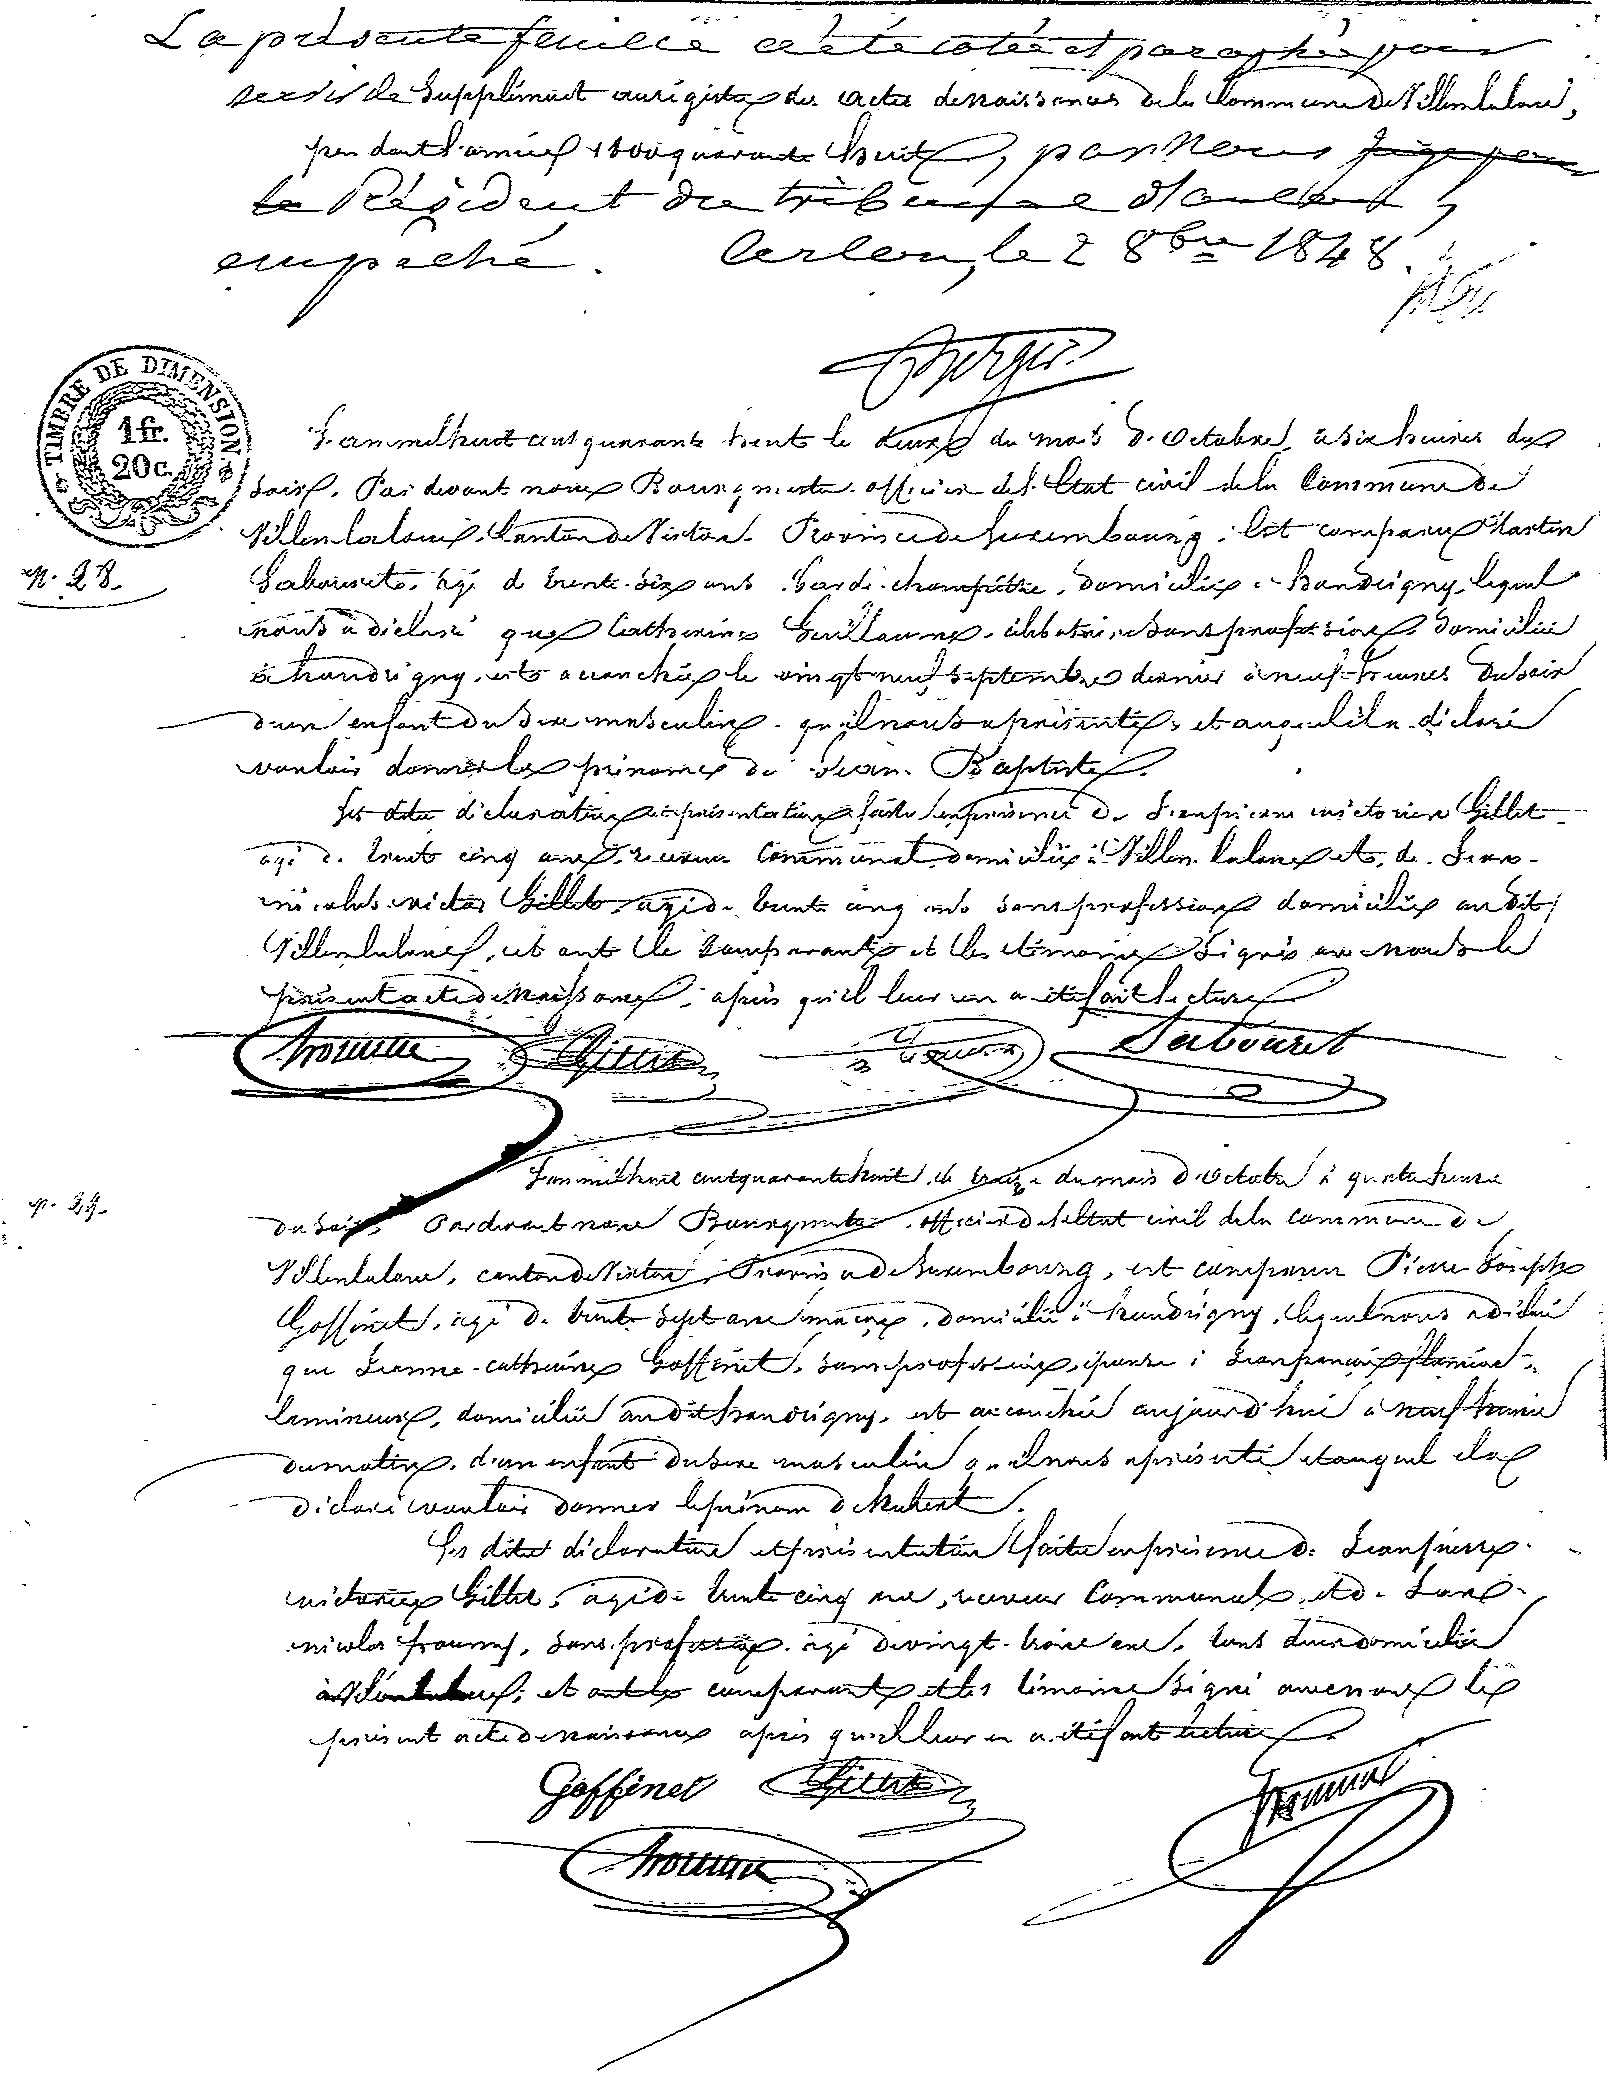 La présente feuille a été cotée et paraphée pour
servir de Supplément au régistre des actes de naissances de la Commune de Villers la loue,
pendant l'année 1800 quarante huit, par Nous juge pour
le Président du tribunal d'Arlon
empêché. Arlon, le 2 8bre 1848.
TIMBRE DE DIMENSION.
1 fr.
20 c.
L'an mil huit cent quarante huit le deux du mois d'Octobre, à six heures du
soir. Par devant nous Bourgmestre officier de l'Etat civil de la Commune de
Villers la loue, Canton de Virton, Province de Luxembourg, Est comparu Martin
N. 28.
Labouret, agé de trente six ans Garde-champêtre, domicilié à houdrigny, lequel
nous a déclaré que Catherine Guillaume, célibataire sans profession, domiciliée
à houdrigny, est accouchée le vingt neuf septembre dernier à neuf heures du soir
d'un enfant du sexe masculin qu'il nous a présenté, et auquel il a déclaré
vouloir donner les prénoms de Jean Baptiste.
Les dites déclaration et présentation faites en présence de Jean pierre victorien Gillet
agé de trente cinq ans, receveur Communal domicilié à Villers la loue et de Jean
nicolas victor Gillet, agé de trente cinq ans sans profession domicilié au dit
Villers la loue, et ont le comparant et les témoins signé avec nous le
présent acte de Naissance, après qu'il leur en a été fait lecture
Gillet
Labouret
L'an mil huit cent quarante huit, le treize du mois d'Octobre à quatre heures
N. 29.
du soir. Par devant nous Bourgmestre, officier de l'état civil de la commune de
Villers la loue, canton de Virton, Province de Luxembourg, est comparu Pierre Joseph
Goffinet, agé de trente sept ans maçon, domicilié à houdrigny, lequel nous a déclaré
que Jeanne-catherine Goffinet, sans profession, épouse à Jean françois
domiciliée au dit houdrigny, est accouchée aujourd'hui à neuf heures
du matin, d'un enfant du sexe masculin qu'il nous a présenté et auquel il a
déclaré vouloir donner le prénom de Hubert.
Les dites déclaration et présentation faites en présence de Jean pierre
victorien Gillet, agé de trente cinq ans, receveur Communal, et de Jean
nicolas sans profession agé de vingt trois ans, tous deux domiciliés
à Villers la loue, et ont les comparant et les témoins signé avec nous le
présent acte de naissance après qu'il leur en a été fait lecture.
Goffinet Gillet